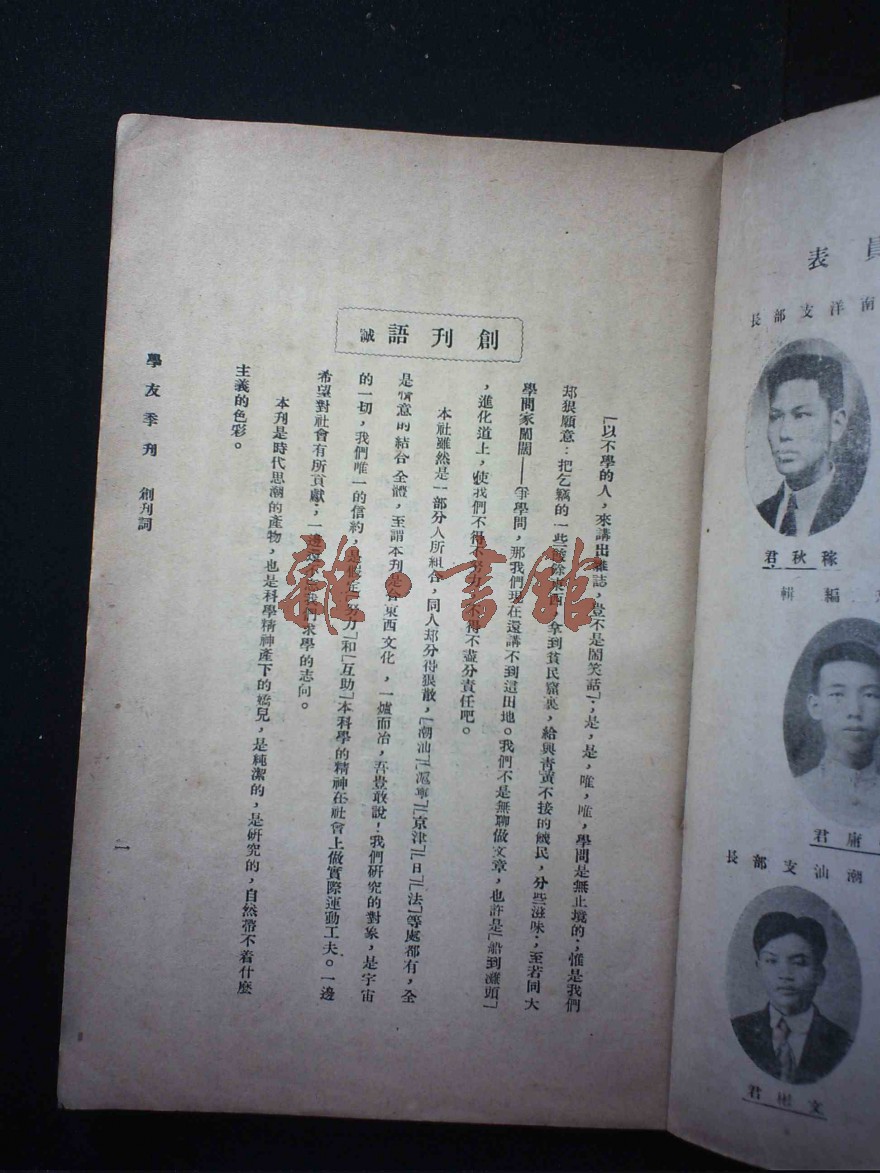 創刊語 誠
「以不學的人，來講出雜誌，豈不是鬧笑話」；是，是，唯，唯，學問是無止境的；惟是我們
却狠願意：把乞竊的一些殘餘東西，拿到貧民窟裏，給與青黃不接的饑民，分些滋味；至若同大
學問家關關——爭學問，那我們現在還講不到這田地。我們不是無聊做文章，也許是「船到灘頭」
，進化道上，使我們不得不努力，不得不盡分責任吧。
本社雖然是一部分人所組合，同人却分得狠散，「潮汕」「滬寧」「京津」「日」「法」等處都有，全
是情意的結合全體，至謂本刊是合東西文化，一爐而冶，吾豈敢說！我們研究的對象，是宇宙
的一切，我們唯一的信約，是「努力」和「互助」本科學的精神在社會上做實際運動工夫。一邊
希望對社會有所貢獻；一邊我們求學的志向。
本刊是時代思潮的產物，也是科學精神產下的嬌兒，是純潔的，是研究的，自然帶不着什麼
主義的色彩。
學友季刊 創刊詞
一
員表
南洋支部長
稼秋君
編輯
庸君
潮汕支部長
文彬君
雜·書館